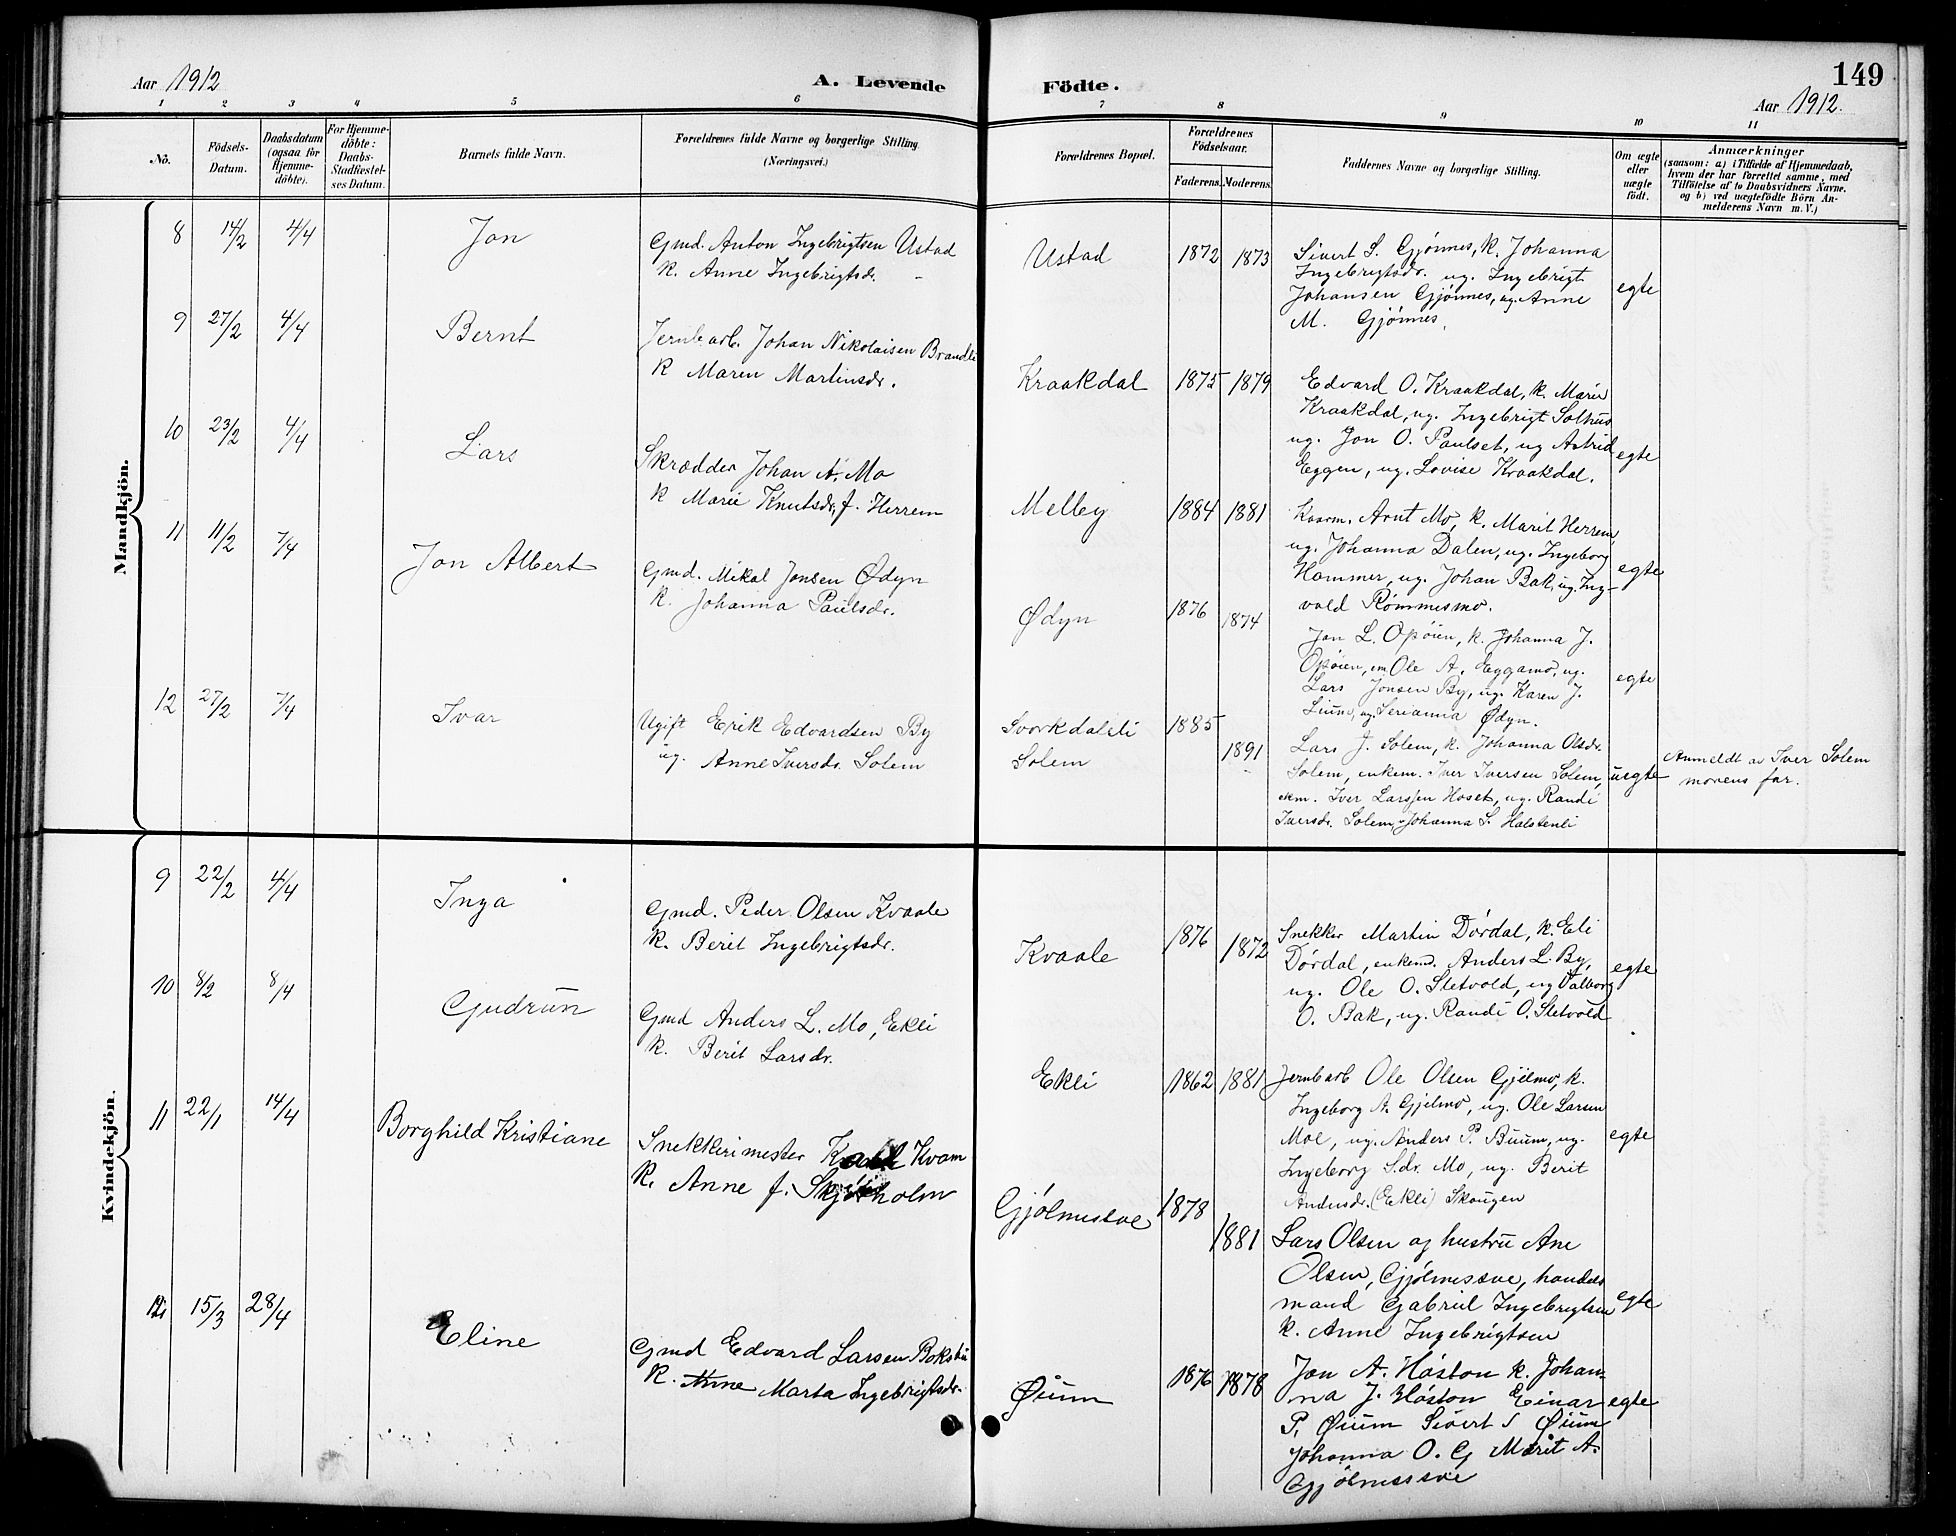 149
Aar 1912
A. Levende Födte.
Aar 1912.
1 2 3 4 5 6 7 8 9 10 11
No.
Födsels-
Datum.
Daabsdatum
(ogsaa for
Hjemme-
döbte).
For Hjemme-
döbte:
Daabs-
Stadfæstel-
ses Datum.
Barnets fulde Navn.
Forældrenes fulde Navne og borgerlige Stilling
(Næringsvei.)
Forældrenes Bopæl.
Forældrenes
Födselsaar.
Faderens. Moderens.
Faddernes Navne og borgerlige Stilling.
Om ægte
eller
uægte
födt.
Anmærkninger
(saasom: a) i Tilfælde af Hjemmedaab,
hvem der har forrettet samme, med
Tilföielse af to Daabsvidners Navne.
og b) ved uægtefödte Börn An-
melderens Navn m. V.)
Mandkjön.
8 14/2 4/4 Jon
Gmd. Anton Ingebrigtsen Ustad
k. Anne Ingebrigtsdr. -
Ustad 1872 1873
Sivert S. Gjönnes, k. Johanna
Ingebrigtsdr. ug. Ingebrigt
Johansen Gjönnes, ug. Anne
M. Gjönnes.
egte
9 27/2 4/4 Bernt
Jernb.arb. Johan Nikolaisen Brandli
k Maren Martinsdr.
Kraakdal 1875 1879
Edvard O. Kraakdal, k. Marie
Kraakdal, ug. Ingebrigt Solhus
ug. Jon O. Paulset, ug Astrid
Eggen, ug. Lovise Kraakdal.
egte
10 23/2 4/4 Lars
Skrædder Johan A. Mo
k Marie Knutsdr. f. Herrem
Melby 1884 1881
Arnt Mo, k. Marit Herrem,
ug. Johanna Dalen, ug. Ingeborg
Hammer, ug. Johan Bak, ug. Ing-
vald Römmesmo.
egte
11 11/2 7/4 Jon Albert
Gmd. Mikal Jonsen Ødyn
k. Johanna Paulsdr.
Ødyn 1876 1874
Jon L. Opöien, k. Johanna J.
Opöien, em Ole A. Eggamo, ug.
Lars Jonsen By, ug. Karen J.
ug. Serianna Ødyn.
egte
12 27/2 7/4 Ivar
Ugift Erik Edvardsen By
ug. Anne Iversdr. Solem
Svorkdalsli 1885
Solem 1891
Lars J. Solem, k. Johanna Olsdr.
Solem, enkem. Iver Iversen Solem,
ekm. Iver Larssen Hoset, ug. Randi
Iversdr. Solem, Johanna S. Halstenli
uegte
Anmeldt av Iver Solem
morens far.
Kvindekjön.
9 22/2 4/4 Inga
Gmd. Peder Olsen Kvaale
k. Berit Ingebrigtsdr.
Kvaale 1876 1872
Snekker Martin Dördal, k. Eli
Dördal, enkemd. Anders L. By,
ug. Ole O. Sletvold, ug Valborg
O. Bak, ug. Randi O. Sletvold
egte
10 8/2 8/4 Gudrun
Gmd Anders L. Mo, Ekli
k. Berit Larsdr.
Ekli 1862 1881
Jernbarb Ole Olsen Gjölmo, k.
Ingeborg A. Gjölmo, ug. Ole Larsen
Moe, ug. Anders P. Buum, ug.
Ingeborg S.dr. Mo, ug. Berit
Andersdr. (Ekli) Skougen
egte
11 22/1 14/4 Borghild Kristiane
Snekkerimester Kvam
k. Anne f.
Gjølmesøe 1878 1881
Lars Olsen og hustru Ane
Olsen, Gjølmesøe, handels
mand Gabriel Ingebrigtsen
k. Anne Ingebrigtsen
egte
12 15/3 28/4 Eline
Gmd Edvard Larsen
k. Anne Marta Ingebrigtsdr.
Øium 1876 1878
Jon A. Høston k. Johan-
na J. Høston Einar
P. Øium Sivert S Øium
Johanna O. G Marit A.
Gjølmesøe
egte